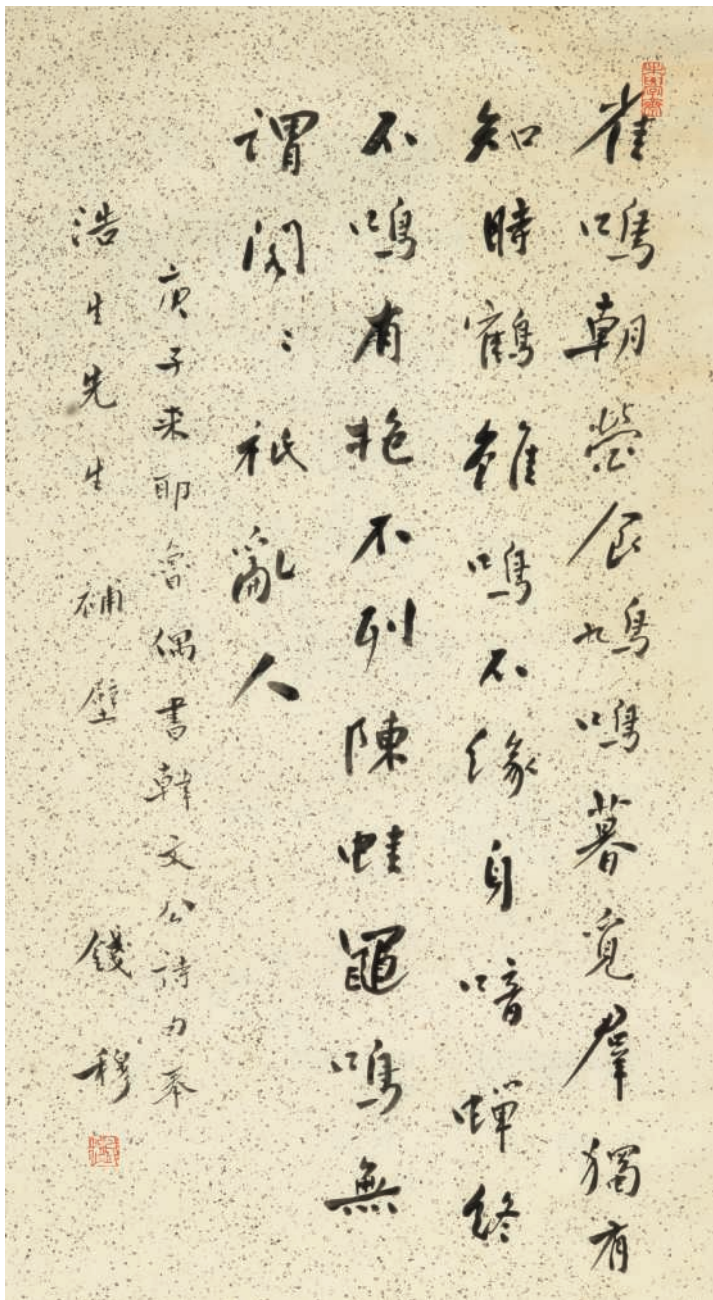 未學齋
雀鳴朝營食鳩鳴暮覓羣獨有
知時鶴雖鳴不緣身喑蟬終
不鳴有抱不列陳蛙黽鳴無
謂閤〻祇亂人
庚子來耶魯偶書韓文公詩句奉
浩生先生 補壁 錢穆